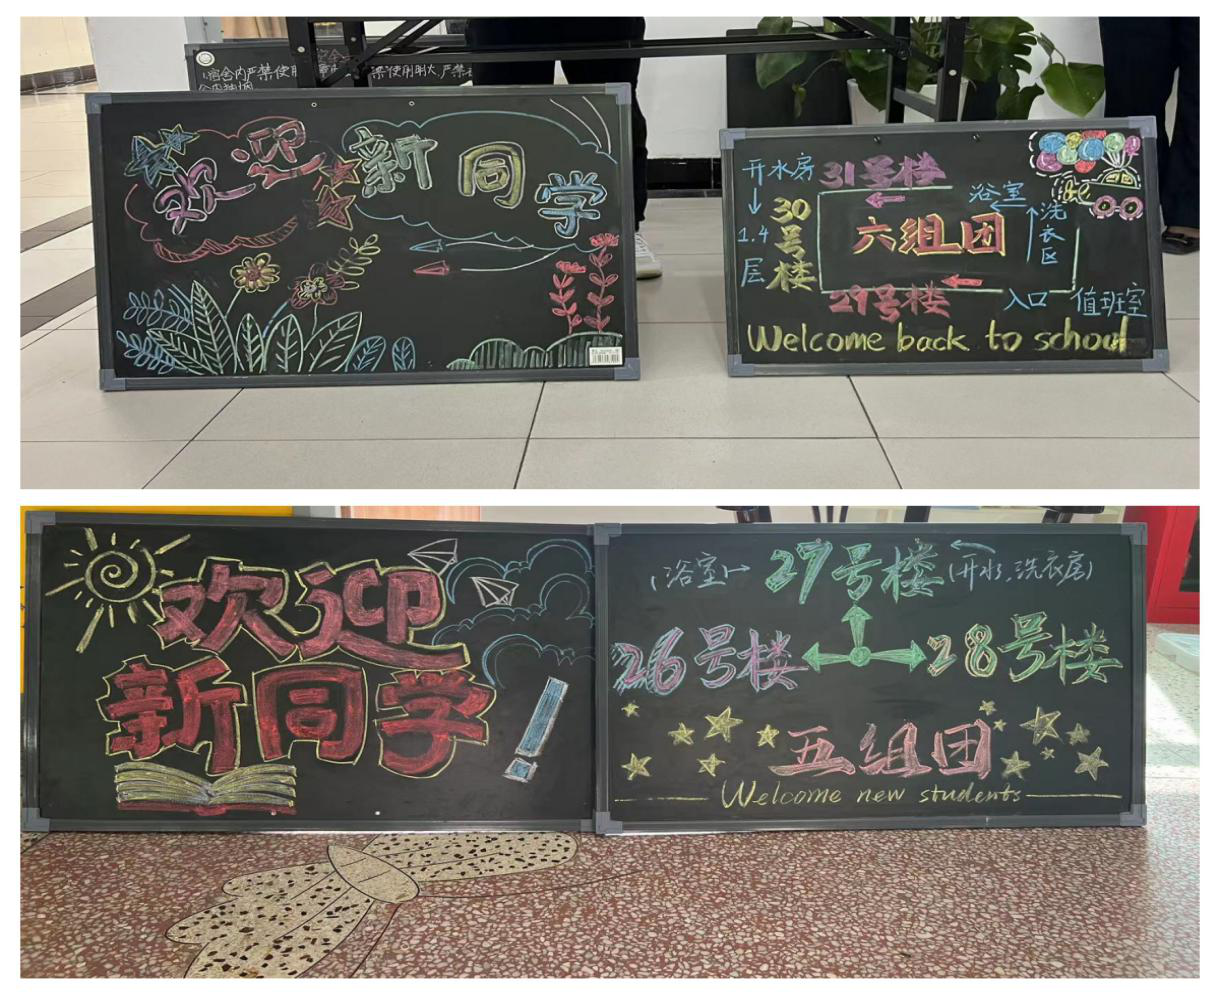 1.宿舍内严禁使用
严禁使用明火,严禁在
欢迎新同学
开水房
31号楼
浴室
洗衣区
1.4层
30号楼
六组团
29号楼
入口
值班室
Welcome back to school
欢迎
新同学!
(浴室→
27号楼
←(开水、洗衣房)
26号楼
28号楼
五组团
Welcome new students